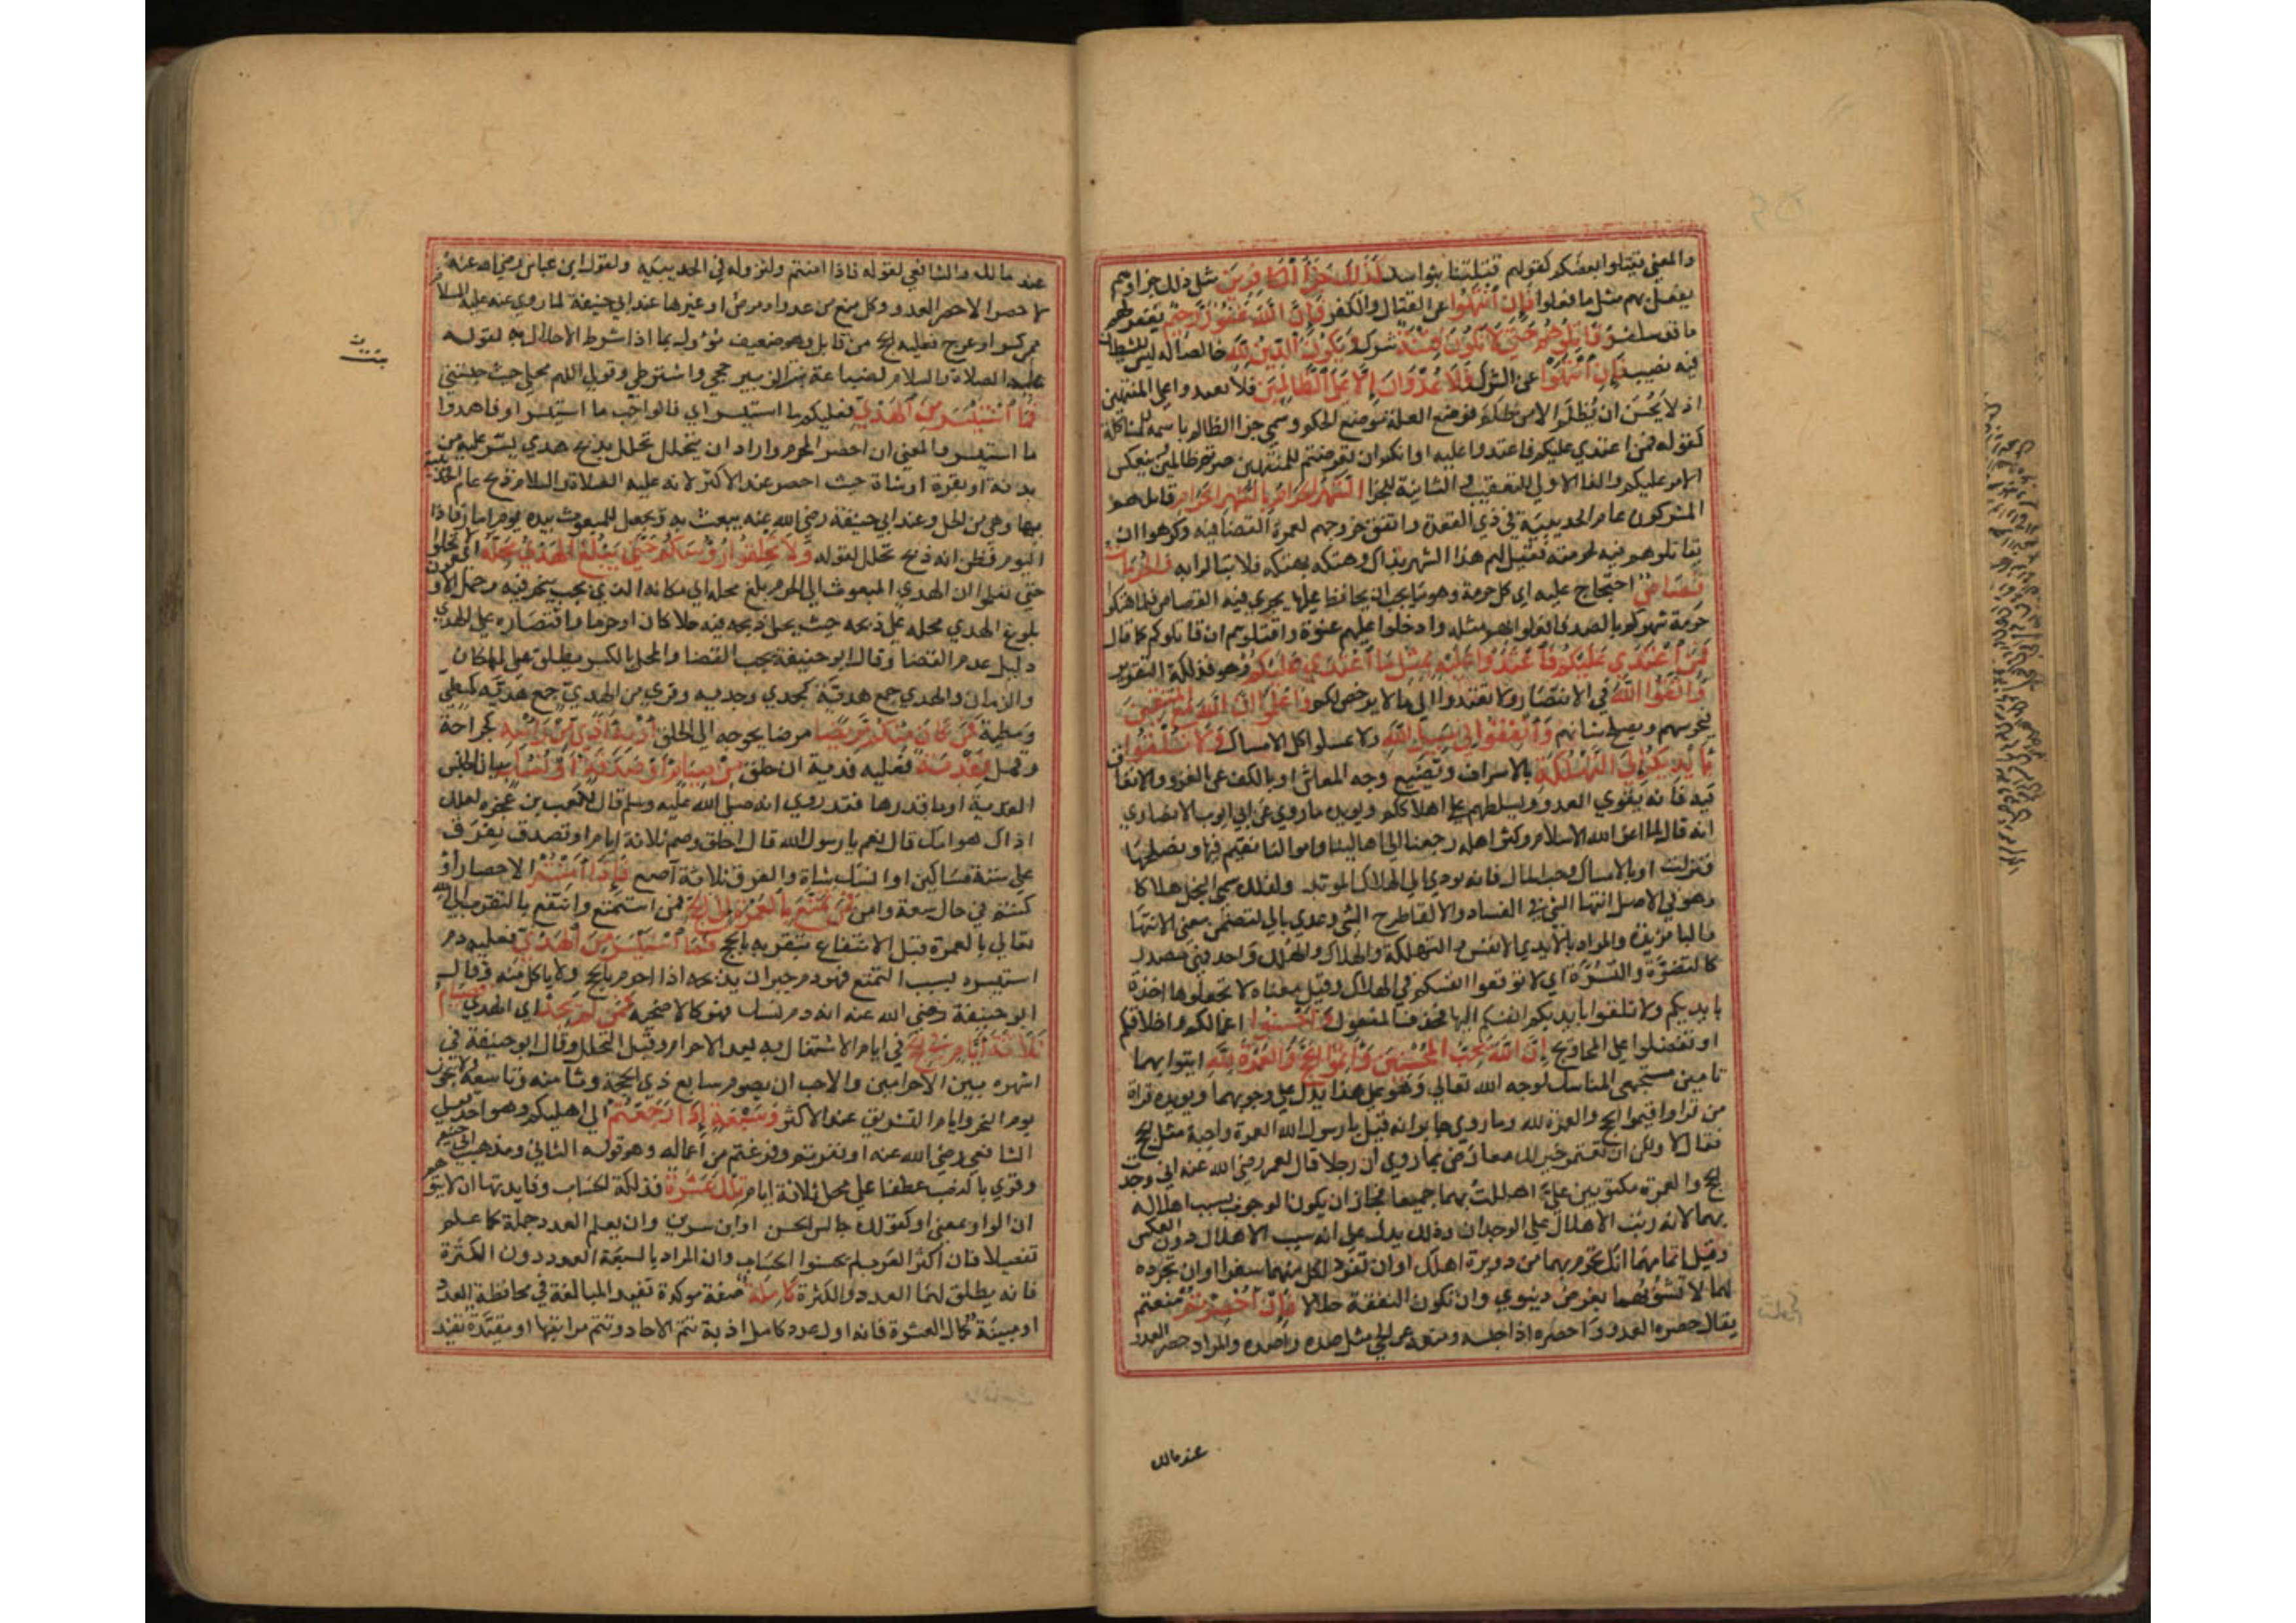 والمعنى حتى يقتلوا بعضكم كقولهم قتلتنا بنوا اسد كَذَلِكَ جَزَآءُ الْكَافِرِينَ مثل ذلك جزاوهم
يفعل بهم مثل ما فعلوا فَإِنِ انْتَهَوْا عن القتال والكفر فَإِنَّ اللَّهَ غَفُورٌ رَحِيمٌ يغفر لهم
ما قد سلف وَقَاتِلُوهُمْ حَتَّى لَا تَكُونَ فِتْنَةٌ شرك وَيَكُونَ الدِّينُ لِلَّهِ خالصا له ليس للشيطان
فيه نصيب فَإِنِ انْتَهَوْا عن الشرك فَلَا عُدْوَانَ إِلَّا عَلَى الظَّالِمِينَ فلا تعتدوا على المنتهين
اذ لا يحسن ان يظلم الا من ظلم فوضع العلة موضع الحكم وسمي جزا الظالم باسمه للمشاكلة
كقوله فمن اعتدي عليكم فاعتدوا عليه او انكم ان تعرضتم للمنتهين صرتم ظالمين وينعكس
الامر عليكم والفا الاولي للتعقيب والثانية للجزا الشَّهْرُ الْحَرَامُ بِالشَّهْرِ الْحَرَامِ قاتلهم
المشركون عام الحديبية في ذي القعدة واتفق خروجهم لعمرة القضا فيه وكرهوا ان
يقاتلوهم فيه لحرمته فقيل لهم هذا الشهر بذاك وهتكه بهتكه فلا تبالوا به وَالْحُرُمَاتُ
قِصَاصٌ احتجاج عليه اي كل حرمة وهو ما يجب ان يحافظ عليها يجري فيه القصاص فلما هتكوا
حرمة شهركم بالصد فافعلوا بهم مثله وادخلوا عليهم عنوة واقتلوهم ان قاتلوكم كما قال
فَمَنِ اعْتَدَى عَلَيْكُمْ فَاعْتَدُوا عَلَيْهِ بِمِثْلِ مَا اعْتَدَى عَلَيْكُمْ وهو فذلكة التقرير
وَاتَّقُوا اللَّهَ في الانتصار ولا تعتدوا الي ما لا يرخص لكم وَاعْلَمُوا أَنَّ اللَّهَ مَعَ الْمُتَّقِينَ
فيحرسهم ويصلح شانهم وَأَنْفِقُوا فِي سَبِيلِ اللَّهِ ولا تمسكوا كل الامساك وَلَا تُلْقُوا
بِأَيْدِيكُمْ إِلَى التَّهْلُكَةِ بالاسراف وتضييع وجه المعاش او بالكف عن الغزو والانفاق
فيه فانه يقوي العدو ويسلطهم علي اهلاككم ويويده ما روي عن ابي ايوب الانصاري
انه قال لما اعز الله الاسلام وكثر اهله رجعنا الي اهالينا واموالنا نقيم فيها ونصلحها
فنزلت او بالامساك وحب المال فانه يودي الي الهلاك الموبد ولذلك سمي البخل هلاكا
وهو في الاصل انتها الشي في الفساد والالقا طرح الشي وعدي بالي لتضمن معني الانتها
والبا مزيدة والمراد بالايدي الانفس والتهلكة والهلاك والهلك واحد فهي مصدر
كالتضرة والتسرة اي لا توقعوا انفسكم في الهلاك وقيل معناه لا تجعلوها اخذة
بايديكم ولا تلقوا بايديكم انفسكم اليها فحذف المفعول وَأَحْسِنُوا اعمالكم واخلاقكم
او تفضلوا علي المحاويج إِنَّ اللَّهَ يُحِبُّ الْمُحْسِنِينَ وَأَتِمُّوا الْحَجَّ وَالْعُمْرَةَ لِلَّهِ ايتوا بهما
تامين مستجمعي المناسك لوجه الله تعالي وهو علي هذا يدل علي وجوبهما ويويده قراة
من قرا واقيموا الحج والعمرة لله وما روي جابر انه قيل يا رسول الله العمرة واجبة مثل الحج
فقال لا ولكن ان تعتمر خير لك معارض بما روي ان رجلا قال لعمر رضي الله عنه اني وجدت
الحج والعمرة مكتوبين علي اهللت بهما جميعا فجاز ان يكون الوجوب بسبب اهلاله
بهما لانه رتب الاهلال علي الوجدان وذلك يدل علي انه سبب الاهلال دون العكس
وقيل اتمامهما ان تحرم بهما من دويرة اهلك او ان تفرد لكل منهما سفرا وان تجرده
لهما لا تشوبهما بغرض دنيوي وان تكون النفقة حلالا فَإِنْ أُحْصِرْتُمْ منعتم
يقال حصره العدو واحصره اذا حبسه ومنعه عن المضي مثل صده واصده والمراد حصر العدو
عند مالك
عند مالك والشافعي لقوله فاذا امنتم ولنزوله في الحديبية ولقول ابن عباس رضي الله عنه
لا حصر الا حصر العدو وكل منع من عدو او مرض او غيرها عند ابي حنيفة لما روي عنه عليه السلام
من كسر او عرج فعليه الحج من قابل وهو ضعيف مؤول بما اذا شرط الاحلال به لقوله
عليه الصلاة والسلام لضباعة بنت الزبير حجي واشترطي وقولي اللهم محلي حيث حبستني
فَمَا اسْتَيْسَرَ مِنَ الْهَدْيِ فعليكم ما استيسر او فالواجب ما استيسر او فاهدوا
ما استيسر والمعني ان احصر المحرم واراد ان يتحلل تحلل بذبح هدي يسر عليه من
بدنة او بقرة او شاة حيث احصر عند الاكثر لانه عليه الصلاة والسلام ذبح عام الحديبية
بها وهي من الحل وعند ابي حنيفة رضي الله عنه يبعث به ويجعل للمبعوث بيده يوم امار فاذا
اليوم وظن انه ذبح تحلل لقوله وَلَا تَحْلِقُوا رُءُوسَكُمْ حَتَّى يَبْلُغَ الْهَدْيُ مَحِلَّهُ اي لا تحلوا
حتي تعلموا ان الهدي المبعوث الي الحرم بلغ محله اي مكانه الذي يجب نحره فيه وحمل الاولون
بلوغ الهدي محله علي ذبحه حيث يحل ذبحه فيه حلا كان او حرما واقتصاره علي الهدي
دليل عدم القضا وقال ابو حنيفة يجب القضا والمحل بالكسر يطلق علي المكان
والزمان والهدي جمع هدية كجدي وجدية وقري من الهدي جمع هدية كمطي
ومطية فَمَنْ كَانَ مِنْكُمْ مَرِيضًا مرضا يحوجه الي الحلق أَوْ بِهِ أَذًى مِنْ رَأْسِهِ كجراحة
وقمل فَفِدْيَةٌ فعليه فدية ان حلق مِنْ صِيَامٍ أَوْ صَدَقَةٍ أَوْ نُسُكٍ بيان لجنس
الفدية اوما قدرها فقد روي انه صلي الله عليه وسلم قال لكعب بن عجرة لعلك
اذاك هوامك قال نعم يا رسول الله قال احلق وصم ثلاثة ايام او تصدق بفرق
علي ستة مساكين او انسك شاة والفرق ثلاثة آصع فَإِذَا أَمِنْتُمْ الاحصار او
كنتم في حال سعة وامن فَمَنْ تَمَتَّعَ بِالْعُمْرَةِ إِلَى الْحَجِّ فمن استمتع وانتفع بالتقرب الي الله
تعالي بالعمرة قبل الانتفاع بتقربه بالحج فَمَا اسْتَيْسَرَ مِنَ الْهَدْيِ فعليه دم
استيسره بسبب التمتع فهو دم جبران يذبحه اذا احرم بالحج ولا ياكل منه وقال
ابو حنيفة رضي الله عنه انه دم نسك فهو كالاضحية فَمَنْ لَمْ يَجِدْ اي الهدي فَصِيَامُ
ثَلَاثَةِ أَيَّامٍ فِي الْحَجِّ في ايام الاشتغال به بعد الاحرام وقبل التحلل وقال ابو حنيفة في
اشهره بين الاحرامين والاحب ان يصوم سابع ذي الحجة وثامنه وتاسعه ولا يجوز
يوم النحر وايام التشريق عند الاكثر وَسَبْعَةٍ إِذَا رَجَعْتُمْ الي اهليكم وهو احد قولي
الشافعي رضي الله عنه او نفرتم وفرغتم من اعماله وهو قوله الثاني ومذهب ابي حنيفة
وقري بالنصب عطفا علي محل ثلاثة ايام تِلْكَ عَشَرَةٌ فذلكة الحساب وفايدتها ان لا يتوهم
ان الواو بمعني او كقولك جالس الحسن او ابن سيرين وان يعلم العدد جملة كما علم
تفصيلا فان اكثر العرب لم يحسنوا الحساب وان المراد بالسبعة العدد دون الكثرة
فانه يطلق لهما العدد والكثرة كَامِلَةٌ صفة موكدة تفيد المبالغة في محافظة العدد
او مبينة كمال العشرة فانه اول عدد كامل اذ به تتم الاحاد وتتم مراتبها او مقيدة تفيد